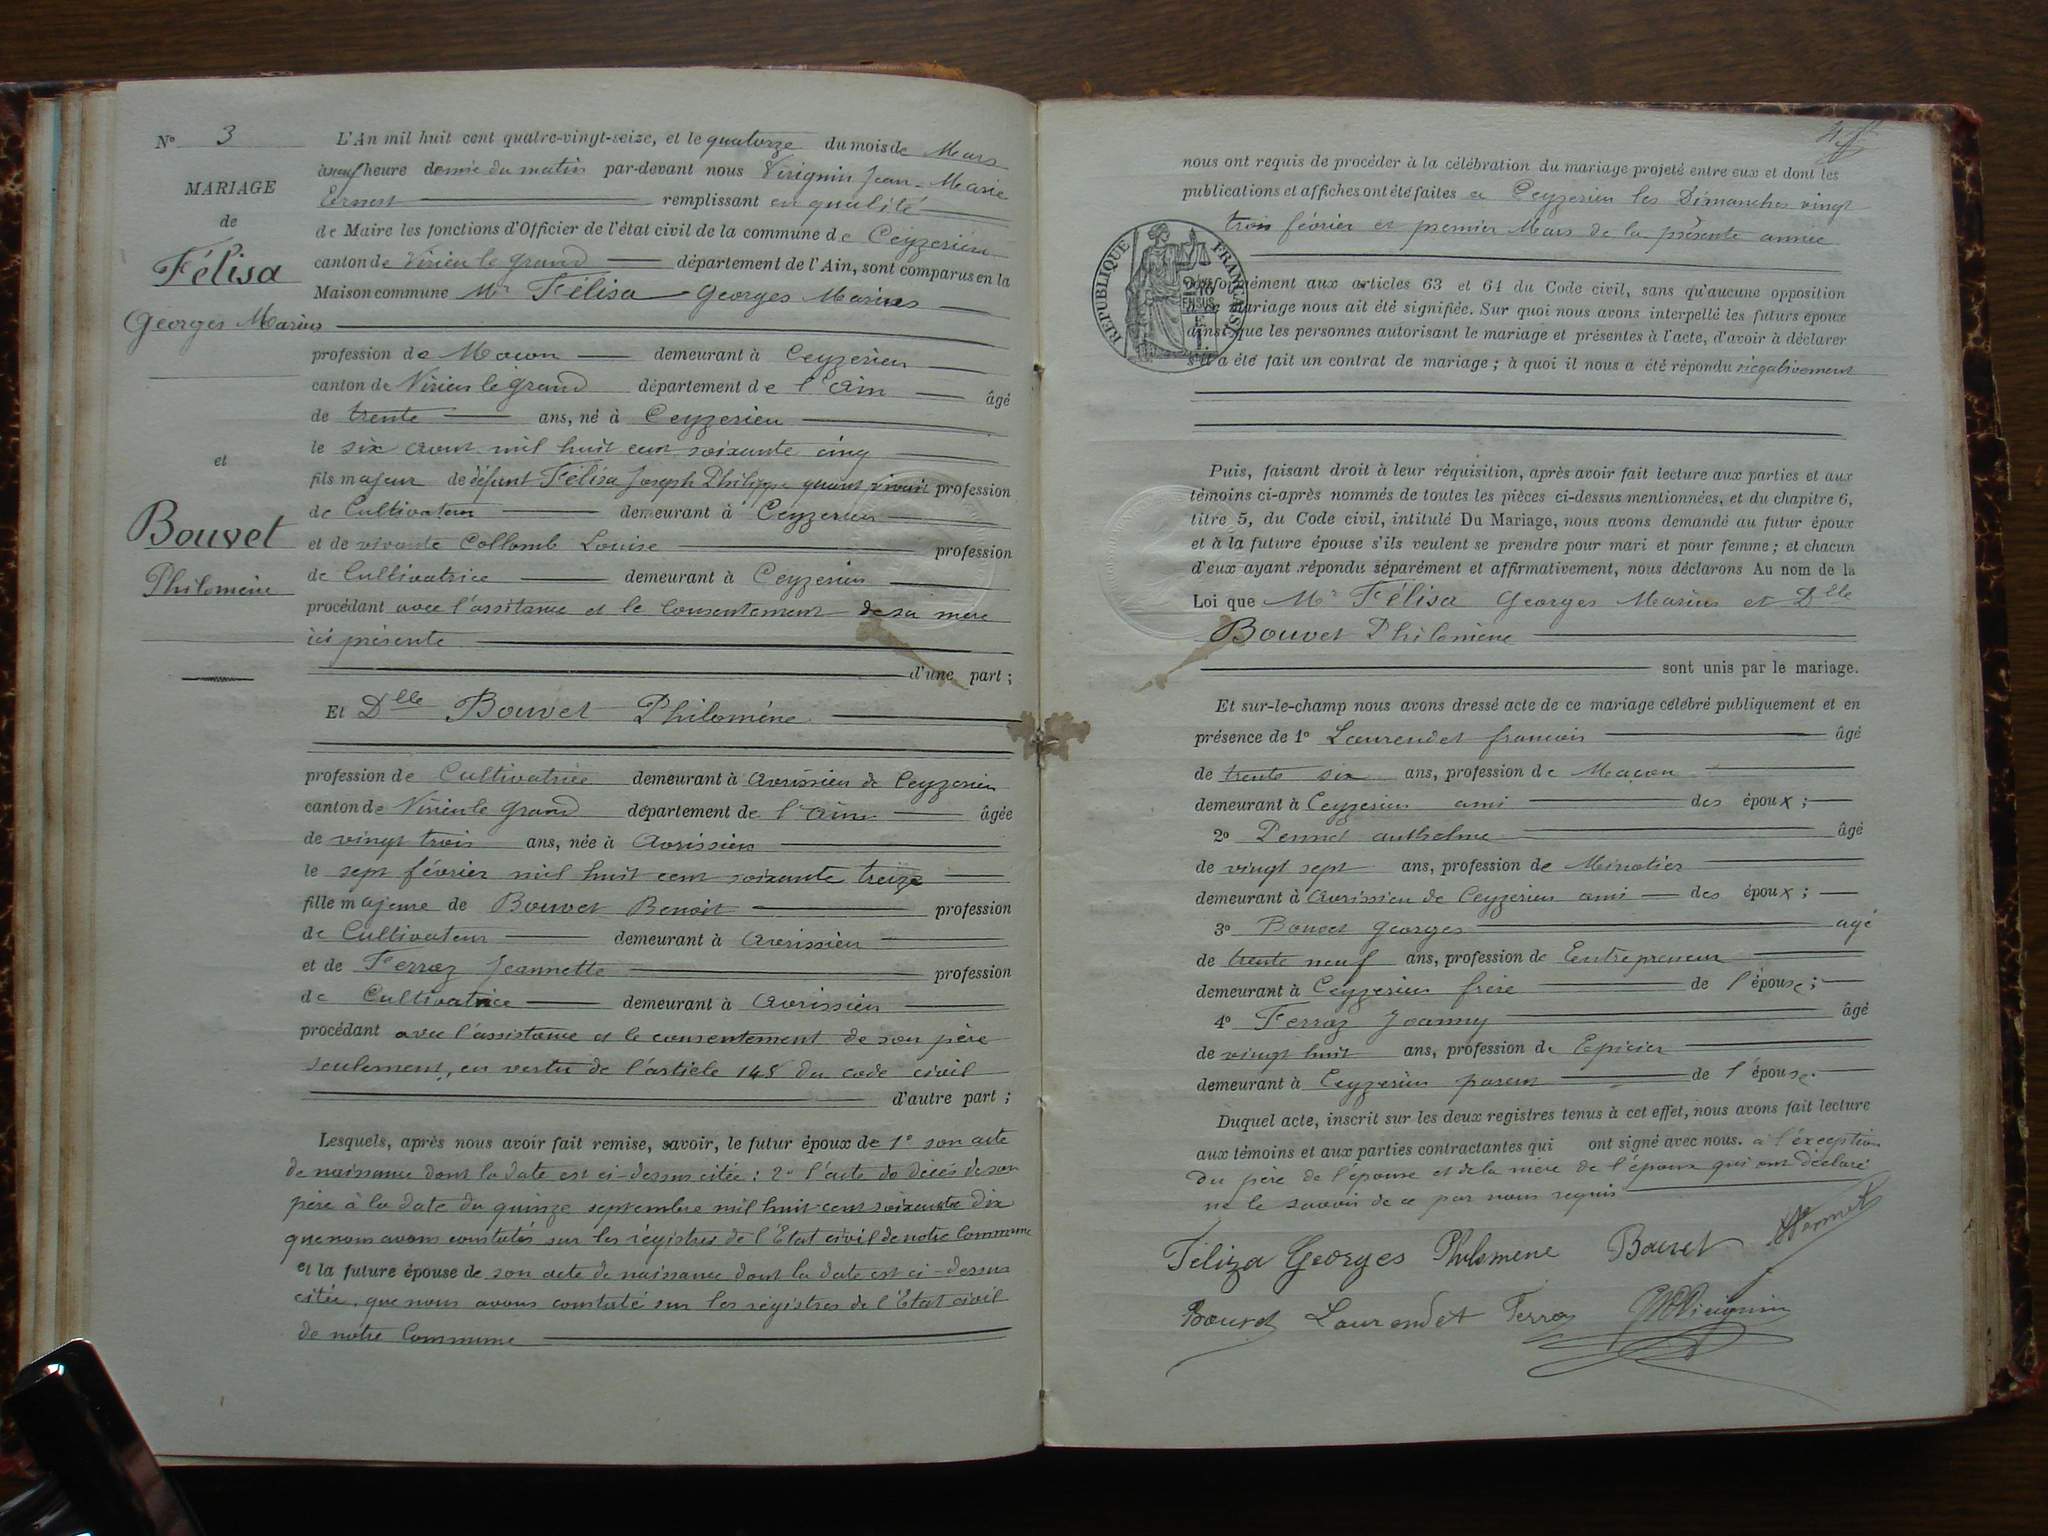 N° 3
MARIAGE
de
Félisa
Georges Marius
et
Bouvet
Philomène
L'An mil huit cent quatre-vingt-seize, et le quatorze du mois de Mars
à neuf heure demie du matin par-devant nous Virignin Jean-Marie
Ernest remplissant en qualité
de Maire les fonctions d'Officier de l'état civil de la commune de Ceyzerieu
canton de Virieu le grand département de l'Ain, sont comparus en la
Maison commune Mr Félisa Georges Marius
profession de Maçon demeurant à Ceyzerieu
canton de Virieu le grand département de l'Ain âgé
de trente ans, né à Ceyzerieu
le six aout mil huit cent soixante cinq
fils majeur de défunt Félisa Joseph Philippe quant vivait profession
de Cultivateur demeurant à Ceyzerieu
et de vivante Collomb Louise profession
de Cultivatrice demeurant à Ceyzerieu
procédant avec l'assitance et le consentement de sa mère
ici présente
d'une part ;
Et Dlle Bouvet Philomène
profession de Cultivatrice demeurant à Avrissieu de Ceyzerieu
canton de Virieu le Grand département de l'Ain âgée
de vingt trois ans, née à Avrissieu
le sept février mil huit cent soixante treize
fille majeure de Bouvet Benoit profession
de Cultivateur demeurant à Avrissieu
et de Ferraz Jeannette profession
de Cultivatrice demeurant à Avrissieu
procédant avec l'assistance et le consentement de son père
seulement, en vertu de l'article 148 du code civil
d'autre part ;
Lesquels, après nous avoir fait remise, savoir, le futur époux de 1° son acte
de naissance dont la date est ci-dessus citée : 2° l'acte de décès de son
père à la date du quinze septembre mil huit cent soixante dix
que nous avons constatés sur les régistres de l'Etat civil de notre Commune
et la future épouse de son acte de naissance dont la date est ci-dessus
citée, que nous avons constaté sur les régistres de l'Etat civil
de notre Commune
nous ont requis de procéder à la célébration du mariage projeté entre eux et dont les
publications et affiches ont été faites à Ceyzerieu les Dimanches vingt
trois février et premier Mars de la présente année
RÉPUBLIQUE FRANÇAISE
conformément aux articles 63 et 64 du Code civil, sans qu'aucune opposition
à ce mariage nous ait été signifiée. Sur quoi nous avons interpellé les futurs époux
ainsi que les personnes autorisant le mariage et présentes à l'acte, d'avoir à déclarer
s'il a été fait un contrat de mariage ; à quoi il nous a été répondu négativement
Puis, faisant droit à leur réquisition, après avoir fait lecture aux parties et aux
témoins ci-après nommés de toutes les pièces ci-dessus mentionnées, et du chapitre 6,
titre 5, du Code civil, intitulé Du Mariage, nous avons demandé au futur époux
et à la future épouse s'ils veulent se prendre pour mari et pour femme ; et chacun
d'eux ayant répondu séparément et affirmativement, nous déclarons Au nom de la
Loi que Mr Félisa Georges Marius et Dlle
Bouvet Philomène
sont unis par le mariage.
Et sur-le-champ nous avons dressé acte de ce mariage célébré publiquement et en
présence de 1° Laurendet francois âgé
de trente six ans, profession de Maçon
demeurant à Ceyzerieu ami des époux ;
2° Pennet anthelme âgé
de vingt sept ans, profession de Minotier
demeurant à Avrissieu de Ceyzerieu ami des époux ;
3° Bouvet Georges agé
de trente neuf ans, profession de Entrepreneur
demeurant à Ceyzerieu frère de l'épouse ;
4° Ferraz Joanny âgé
de vingt huit ans, profession de Epicier
demeurant à Ceyzerieu parent de l'épouse.
Duquel acte, inscrit sur les deux registres tenus à cet effet, nous avons fait lecture
aux témoins et aux parties contractantes qui ont signé avec nous. à l'exception
du père de l'épouse et de la mère de l'époux qui ont déclaré
ne le savoir de ce par nous requis
Féliza Georges Philomene Bouvet Pennet
Bouvet Laurendet Ferraz Virignin